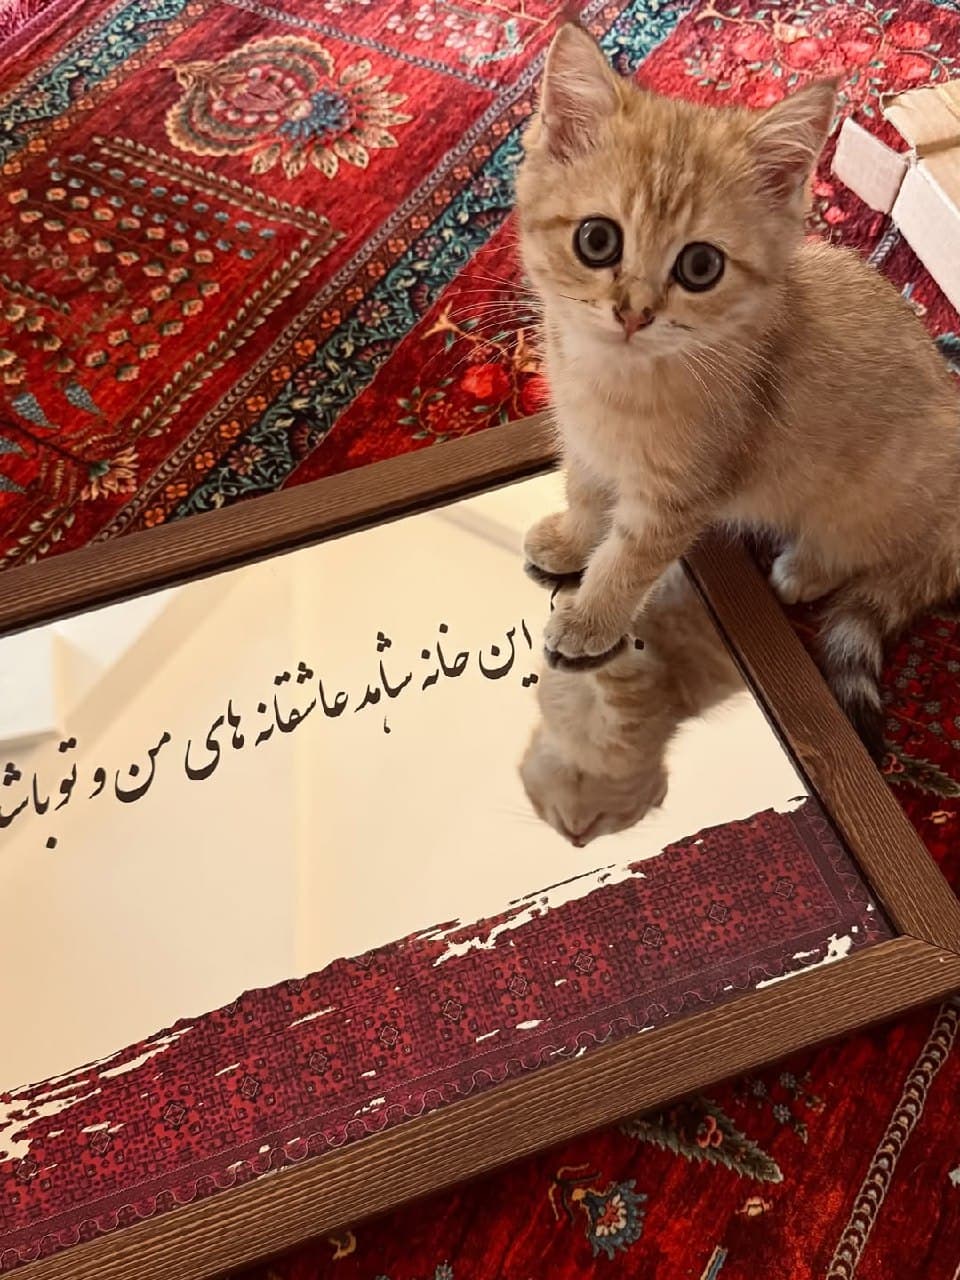 این خانه شاهد عاشقانه های من و تو باش